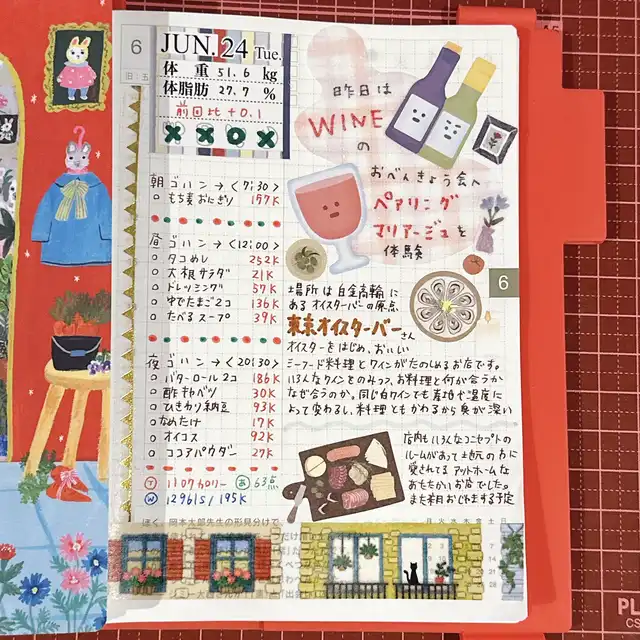 6
JUN. 24 Tue.
旧 五
体 重 51.6 kg
体脂肪 27.7 %
前回比 +0.1
朝 ゴハン → <7:30>
もち麦おにぎり 157K
昼 ゴハン → <12:00>
タコめし 252K
大根サラダ 21K
ドレッシング 57K
ゆでたまご2コ 136K
たべるスープ 39K
夜 ゴハン → <20:30>
バターロール2コ 186K
酢キャベツ 30K
ひきわり納豆 93K
なめたけ 17K
オイコス 92K
ココアパウダー 27K
T 1107カロリー あ 63点
W 12961s / 195K
昨日は
WINE
の
おべんきょう会へ
ペアリング
マリアージュを
体験
場所は白金高輪に
あるオイスターバーの原点
東京オイスターバーさん
オイスターをはじめ、おいしい
シーフード料理とワインがたのしめるお店です。
いろんなワインとのみつつ、お料理と何が合うか
なぜ合うのか。同じ白ワインでも産地や温度に
よって変わるし、料理ともかわるから奥が深い
6
店内もいろんなコンセプトの
ルームがあって地元の方に
愛されてるアットホームな
おもむきのお店でした。
また来月おじゃまする予定
ぼく、岡本太郎先生の形見分けで、
月 火 水 木 金 土 日